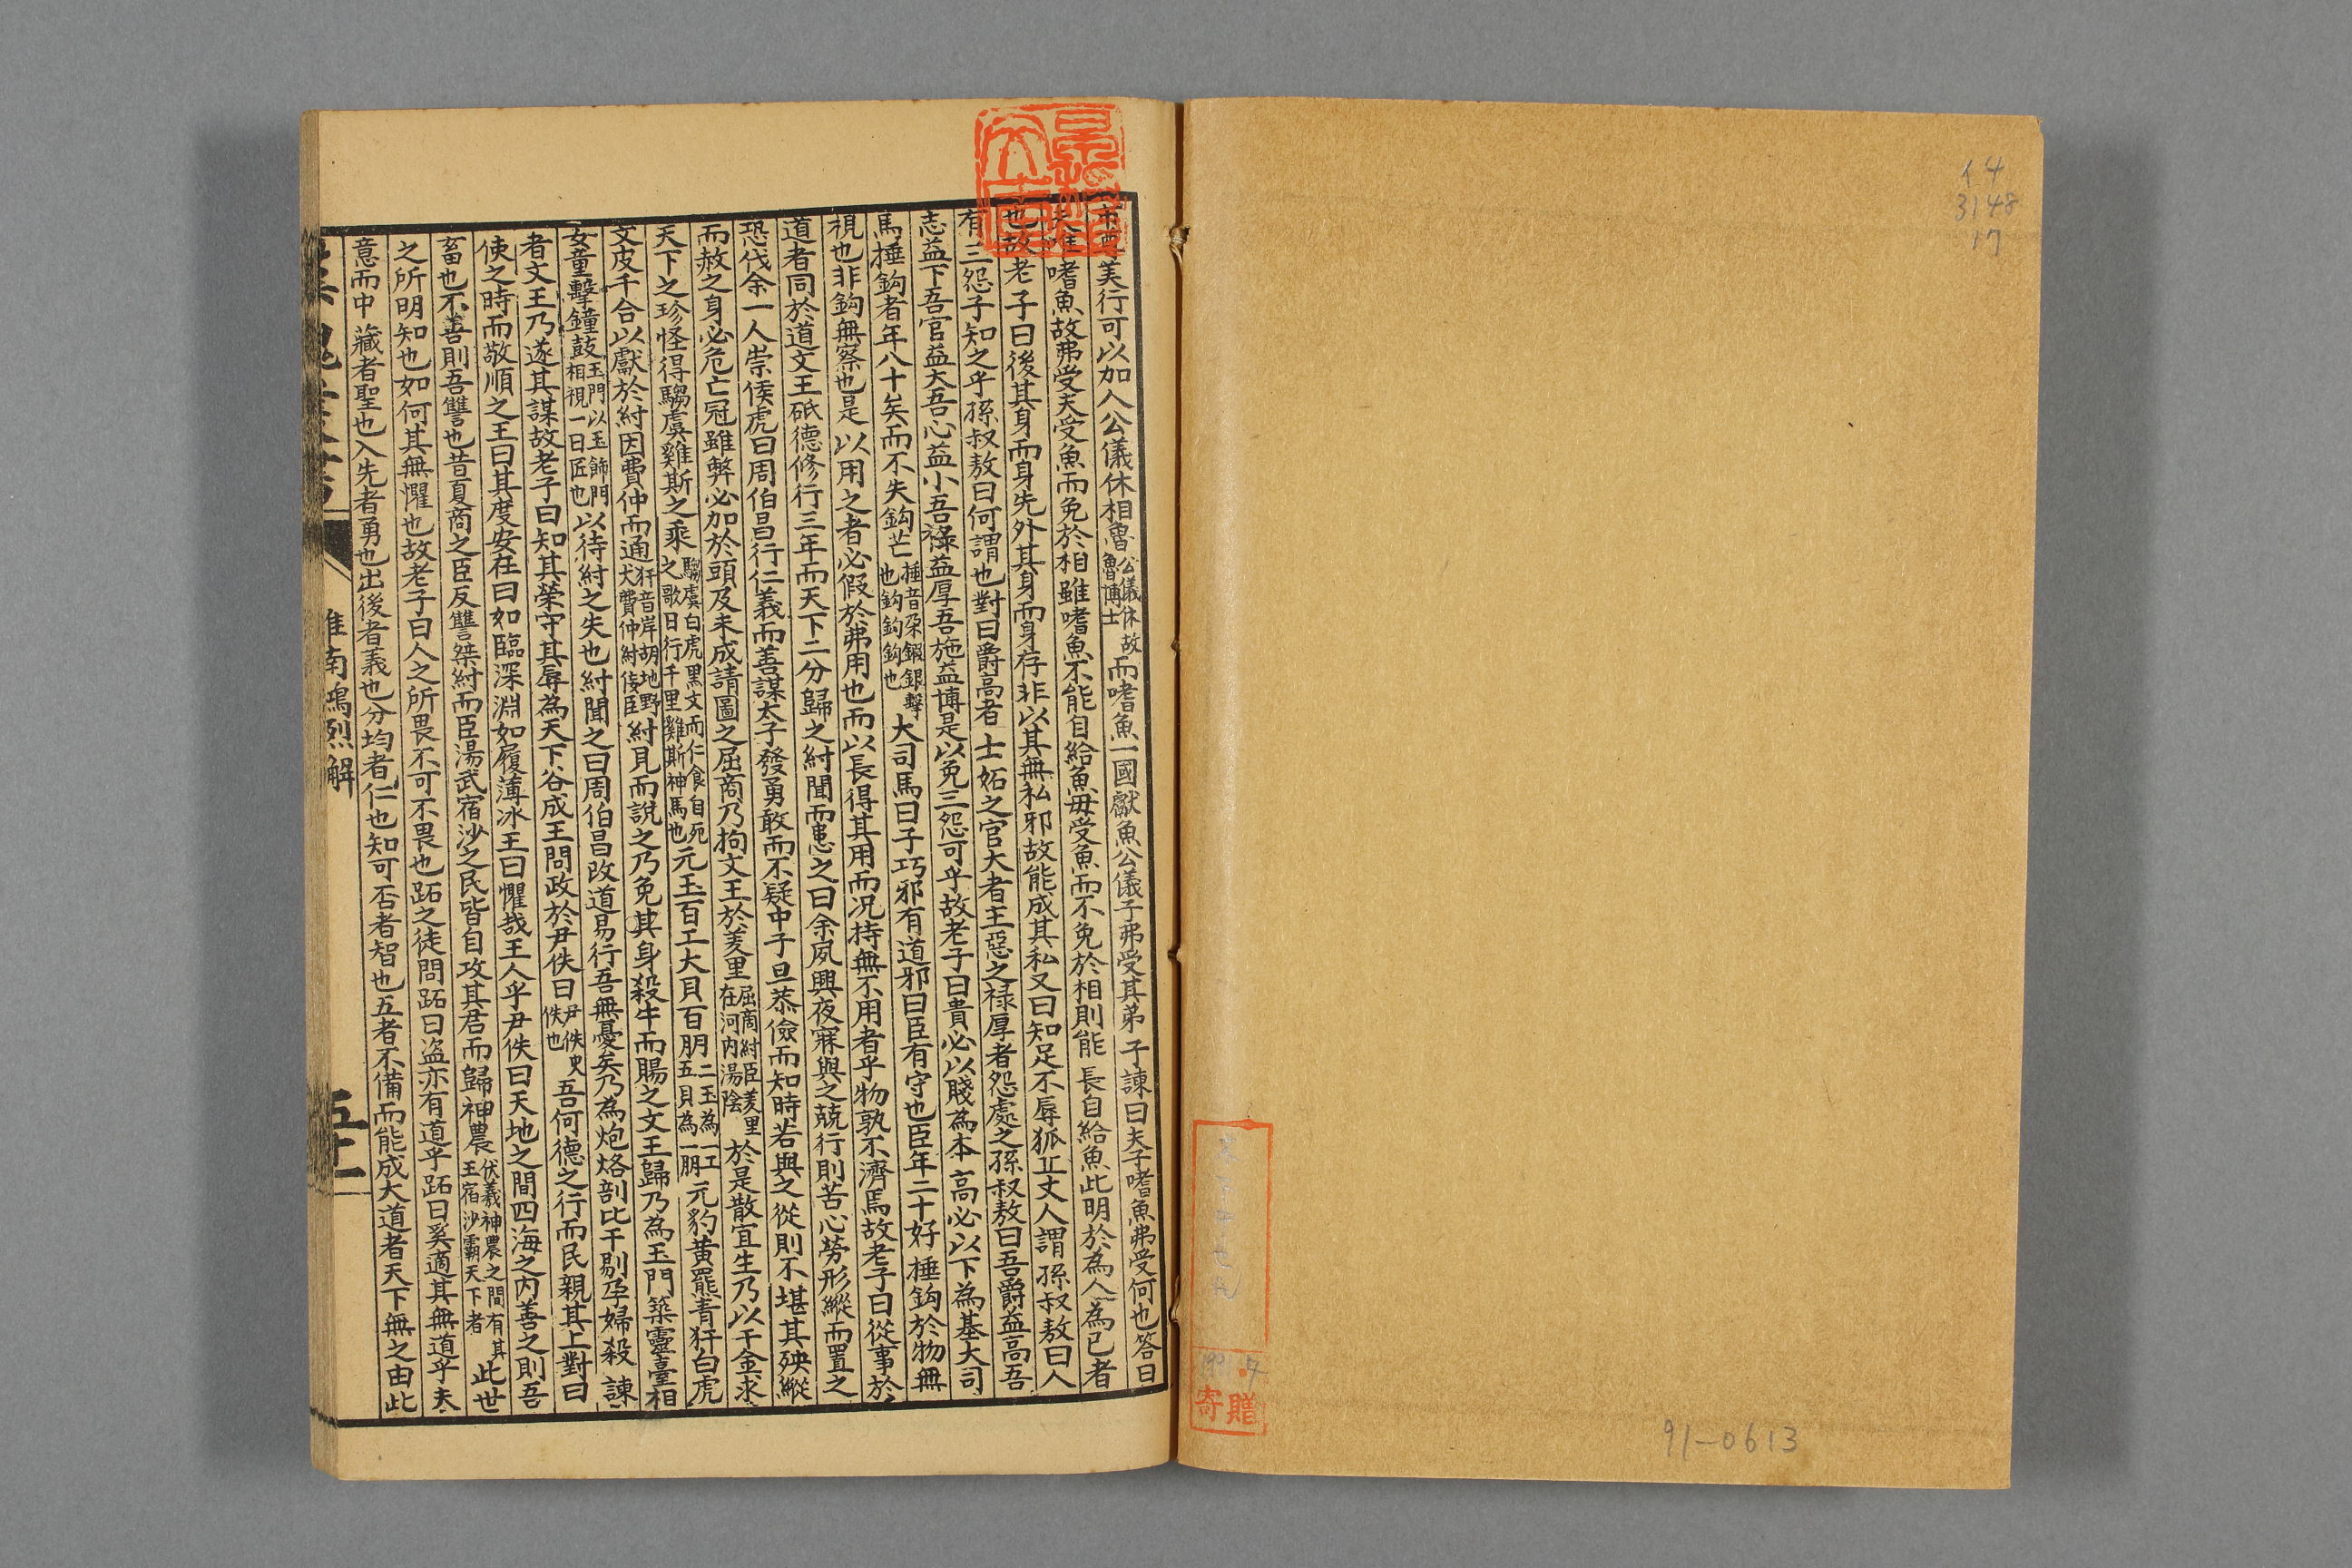 イ4
3148
17
寄贈
91-0613
美行可以加人公儀休相魯公儀休故魯博士而嗜魚一國獻魚公儀子弗受其弟子諫曰夫子嗜魚弗受何也答曰
夫唯嗜魚故弗受夫受魚而免於相雖嗜魚不能自給魚毋受魚而不免於相則能長自給魚此明於為人為已者
也故老子曰後其身而身先外其身而身存非以其無私邪故能成其私又曰知足不辱狐丘丈人謂孫叔敖曰人
有三怨子知之乎孫叔敖曰何謂也對曰爵高者士妬之官大者主惡之祿厚者怨處之孫叔敖曰吾爵益高吾
志益下吾官益大吾心益小吾祿益厚吾施益博是以免三怨可乎故老子曰貴必以賤為本高必以下為基大司
馬捶鈎者年八十矣而不失鈎芒捶音朶鍛銀擊也鈎鈎鈎也大司馬曰子巧邪有道邪曰臣有守也臣年二十好捶鈎於物無
視也非鈎無察也是以用之者必假於弗用也而以長得其用而况持無不用者乎物孰不濟焉故老子曰從事於
道者同於道文王砥德修行三年而天下二分歸之紂聞而患之曰余夙興夜寐與之競行則苦心勞形縱而置之
恐伐余一人崇侯虎曰周伯昌行仁義而善謀太子發勇敢而不疑中子旦恭儉而知時若與之從則不堪其殃縱
而赦之身必危亡冠雖弊必加於頭及未成請圖之屈商乃拘文王於羑里屈商紂臣羑里在河內湯陰於是散宜生乃以千金求
天下之珍怪得騶虞雞斯之乘騶虞白虎黑文而仁食自死之歌日行千里雞斯神馬也元玉百工大貝百朋二玉為一工五貝為一朋元豹黃羆青犴白虎
文皮千合以獻於紂因費仲而通犴音岸胡地野犬費仲紂佞臣紂見而說之乃免其身殺牛而賜之文王歸乃為玉門築靈臺相
女童擊鐘鼓玉門以玉飾門相視一日匠也以待紂之失也紂聞之曰周伯昌改道易行吾無憂矣乃為炮烙剖比干剔孕婦殺諫
者文王乃遂其謀故老子曰知其榮守其辱為天下谷成王問政於尹佚曰尹佚史佚也吾何德之行而民親其上對曰
使之時而敬順之王曰其度安在曰如臨深淵如履薄冰王曰懼哉王人乎尹佚曰天地之間四海之內善之則吾
畜也不善則吾讐也昔夏商之臣反讐桀紂而臣湯武宿沙之民皆自攻其君而歸神農伏羲神農之間有其王宿沙霸天下者此世
之所明知也如何其無懼也故老子曰人之所畏不可不畏也跖之徒問跖曰盜亦有道乎跖曰奚適其無道乎夫
意而中藏者聖也入先者勇也出後者義也分均者仁也知可否者智也五者不備而能成大道者天下無之由此
淮南鴻烈解
五十一